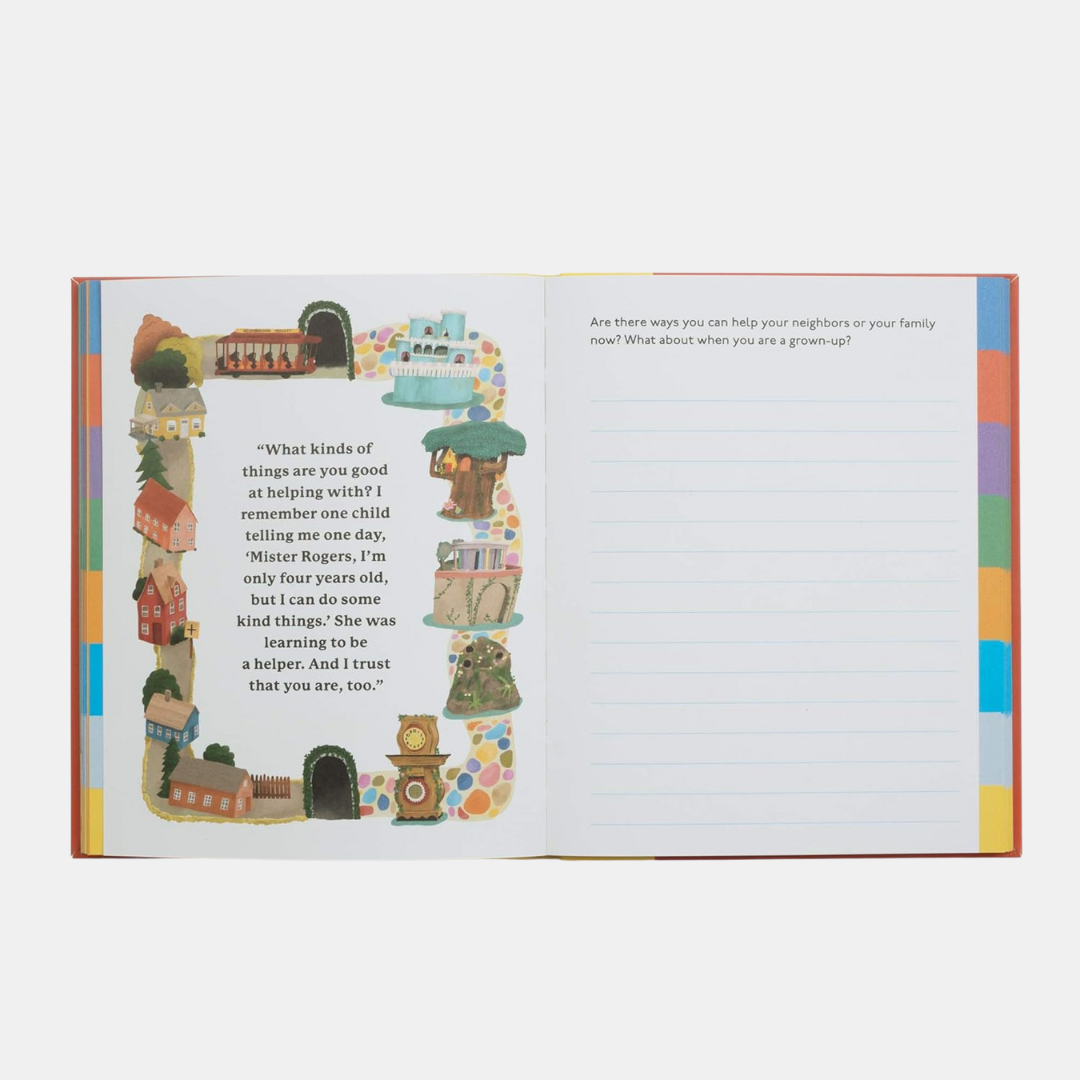 “What kinds of
things are you good
at helping with? I
remember one child
telling me one day,
‘Mister Rogers, I’m
only four years old,
but I can do some
kind things.’ She was
learning to be
a helper. And I trust
that you are, too.”
Are there ways you can help your neighbors or your family
now? What about when you are a grown-up?